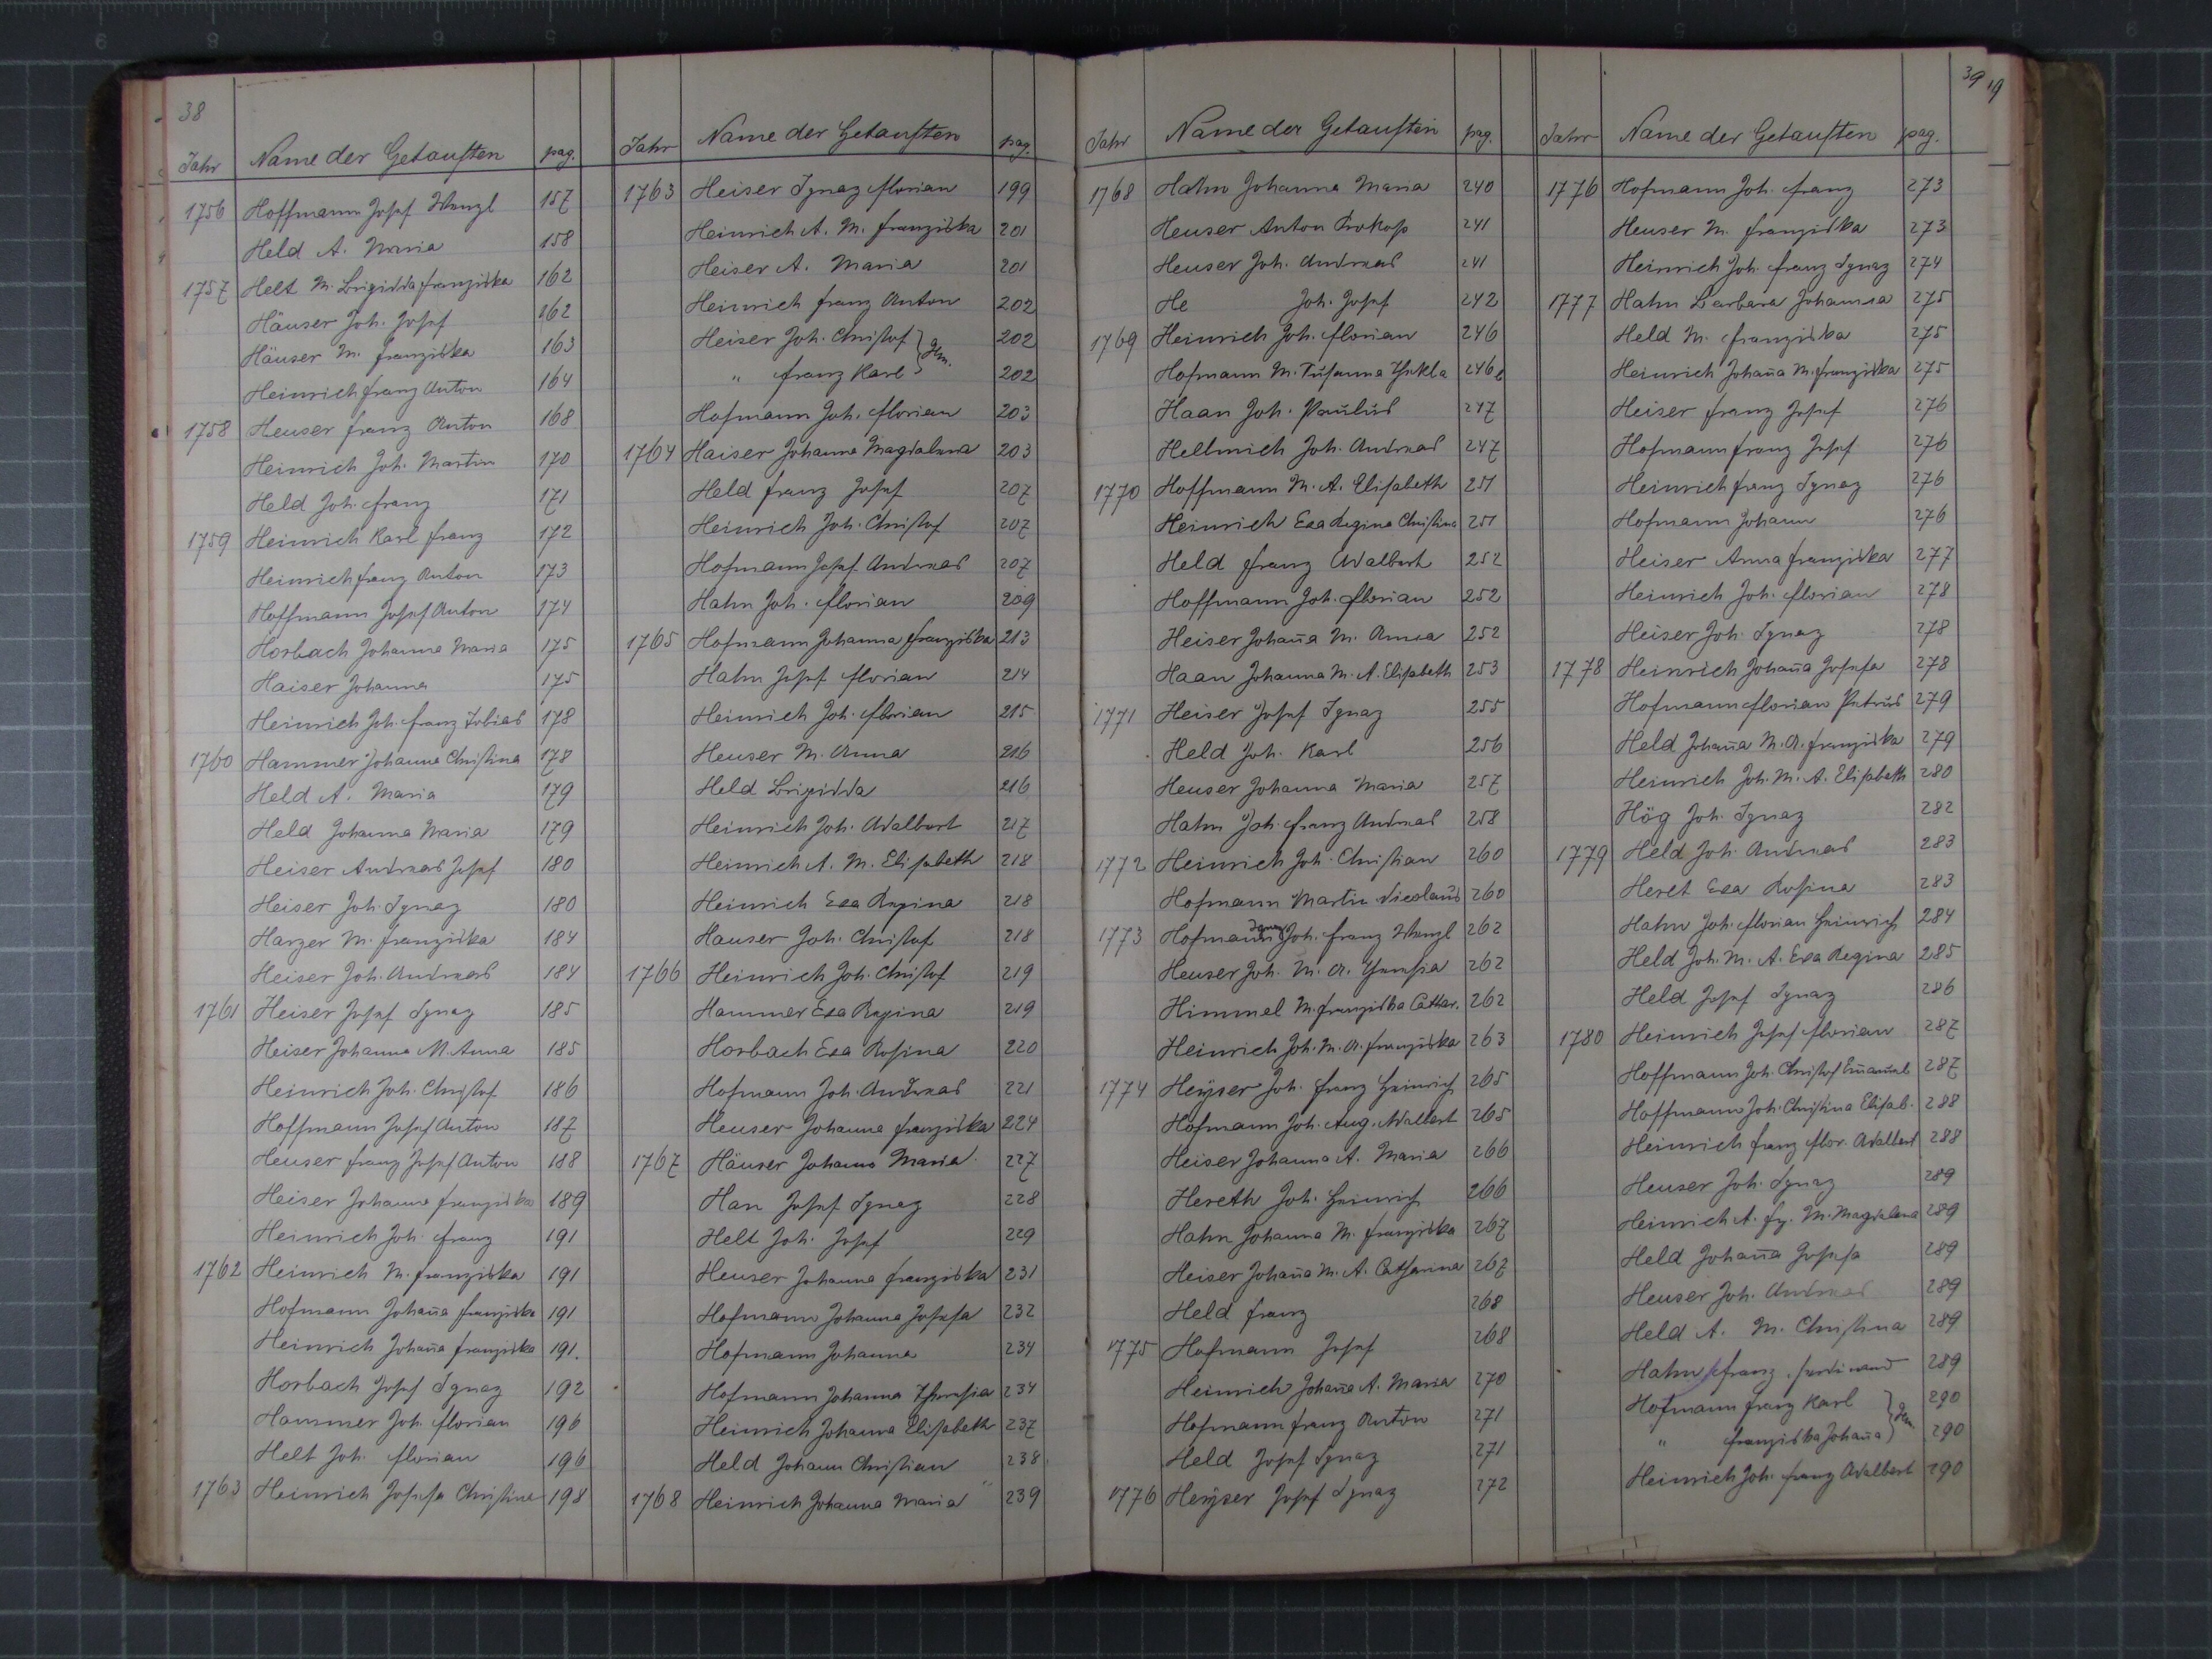 38
Jahr Name der Getauften pag.
1756 Hoffmann Josef Wenzl 157
Held A. Maria 158
1757 Helt M. Brigidda Franziska 162
Häuser Joh. Josef 162
Häuser M. Franziska 163
Heinrich Franz Anton 164
1758 Heuser Franz Anton 168
Heinrich Joh. Martin 170
Held Joh. Franz 171
1759 Heinrich Karl Franz 172
Heinrich Franz Anton 173
Hoffmann Josef Anton 174
Horbach Johanna Maria 175
Haiser Johanna 175
Heinrich Joh. Franz Tobias 178
1760 Hammer Johanna Christina 178
Held A. Maria 179
Held Johanna Maria 179
Heiser Andreas Josef 180
Heiser Joh. Ignaz 180
Harzer M. Franziska 184
Heiser Joh. Andreas 184
1761 Heiser Josef Ignaz 185
Heiser Johanna M. Anna 185
Heinrich Joh. Christof 186
Hoffmann Josef Anton 187
Heuser Franz Josef Anton 188
Heiser Johanna Franziska 189
Heinrich Joh. Franz 191
1762 Heinrich M. Franziska 191
Hofmann Johan̄a Franziska 191
Heinrich Johan̄a Franziska 191.
Horbach Josef Ignaz 192
Hammer Joh. Florian 196
Helt Joh. Florian 196
1763 Heinrich Josefa Christina 198
Jahr Name der Getauften pag.
1763 Heiser Ignaz Florian 199
Heinrich A. M. Franziska 201
Heiser A. Maria 201
Heinrich Franz Anton 202
Heiser Joh. Christof } Gem. 202
" Franz Karl 202
Hofmann Joh. Florian 203
1764 Haiser Johanna Magdalena 203
Held Franz Josef 207
Heinrich Joh. Christof 207
Hofmann Josef Andreas 207
Hahn Joh. Florian 209
1765 Hofmann Johanna Franziska 213
Hahn Josef Florian 214
Heinrich Joh. Florian 215
Heuser M. Anna 216
Held Brigidda 216
Heinrich Joh. Adalbert 217
Heinrich A. M. Elisabeth 218
Heinrich Eva Regina 218
Hauser Joh. Christof 218
1766 Heinrich Joh. Christof 219
Hammer Eva Regina 219
Horbach Eva Rosina 220
Hofmann Joh. Andreas 221
Heuser Johanna Franziska 224
1767 Häuser Johanna Maria 227
Han Josef Ignaz 228
Helt Joh. Josef 229
Heuser Johanna Franziska 231
Hofmann Johanna Josefa 232
Hofmann Johanna 234
Hofmann Johanna Theresia 234
Heinrich Johanna Elisabeth 237
Held Johann Christian 238
1768 Heinrich Johanna Maria 239
Jahr Name der Getauften pag.
1768 Hahn Johanna Maria 240
Heuser Anton Prokop 241
Heuser Joh. Andreas 241
He Joh. Josef 242
1769 Heinrich Joh. Florian 246
Hofmann M. Susanna Thekla 246
Haan Joh. Paulus 247
Hellmich Joh. Andreas 247
1770 Hoffmann M. A. Elisabeth 251
Heinrich Eva Regina Christina 251
Held Franz Adalbert 252
Hoffmann Joh. Florian 252
Heiser Johan̄a M. Anna 252
Haan Johanna M. A. Elisabeth 253
1771 Heiser Josef Ignaz 255
Held Joh. Karl 256
Heuser Johanna Maria 257
Hahn Joh. Franz Andreas 258
1772 Heinrich Joh. Christian 260
Hofmann Martin Nicolaus 260
1773 Hofmann Ignaz Joh. Franz Wenzl 262
Heuser Joh. M. A. Theresia 262
Himmel M. Franziska Cathar. 262
Heinrich Joh. M. A. Franziska 263
1774 Heÿser Joh. Franz Heinrich 265
Hofmann Joh. Aug. Adalbert 265
Heiser Johanna A. Maria 266
Hereth Joh. Heinrich 266
Hahn Johanna M. Franziska 267
Heiser Johan̄a M. A. Catharina 267
Held Franz 268
1775 Hofmann Josef 268
Heinrich Johan̄a A. Maria 270
Hofmann Franz Anton 271
Held Josef Ignaz 271
1776 Heÿser Josef Ignaz 272
39 19
Jahr Name der Getauften pag.
1776 Hofmann Joh. Franz 273
Heuser M. Franziska 273
Heinrich Joh. Franz Ignaz 274
1777 Hahn Barbara Johanna 275
Held M. Franziska 275
Heinrich Johan̄a M. Franziska 275
Heiser Franz Josef 276
Hofmann Franz Josef 276
Heinrich Franz Ignaz 276
Hofmann Johann 276
Heiser Anna Franziska 277
Heinrich Joh. Florian 278
Heiser Joh. Ignaz 278
1778 Heinrich Johan̄a Josefa 278
Hofmann Florian Petrus 279
Held Johan̄a M. A. Franziska 279
Heinrich Joh. M. A. Elisabeth 280
Hög Joh. Ignaz 282
1779 Held Joh. Andreas 283
Heret Eva Rosina 283
Hahn Joh. Florian Heinrich 284
Held Joh. M. A. Eva Regina 285
Held Josef Ignaz 286
1780 Heinrich Josef Florian 287
Hoffmann Joh. Christof Em̄anuel 287
Hoffmann Joh. Christina Elisab. 288
Heinrich Franz Flor. Adalbert 288
Heuser Joh. Ignaz 289
Heinrich A. Fz. M. Magdalena 289
Held Johan̄a Josefa 289
Heuser Joh. Andreas 289
Held A. M. Christina 289
Hahn Franz Ferdinand 289
Hofmann Franz Karl } Gem. 290
" Franziska Johan̄a 290
Heinrich Joh. Franz Adalbert 290